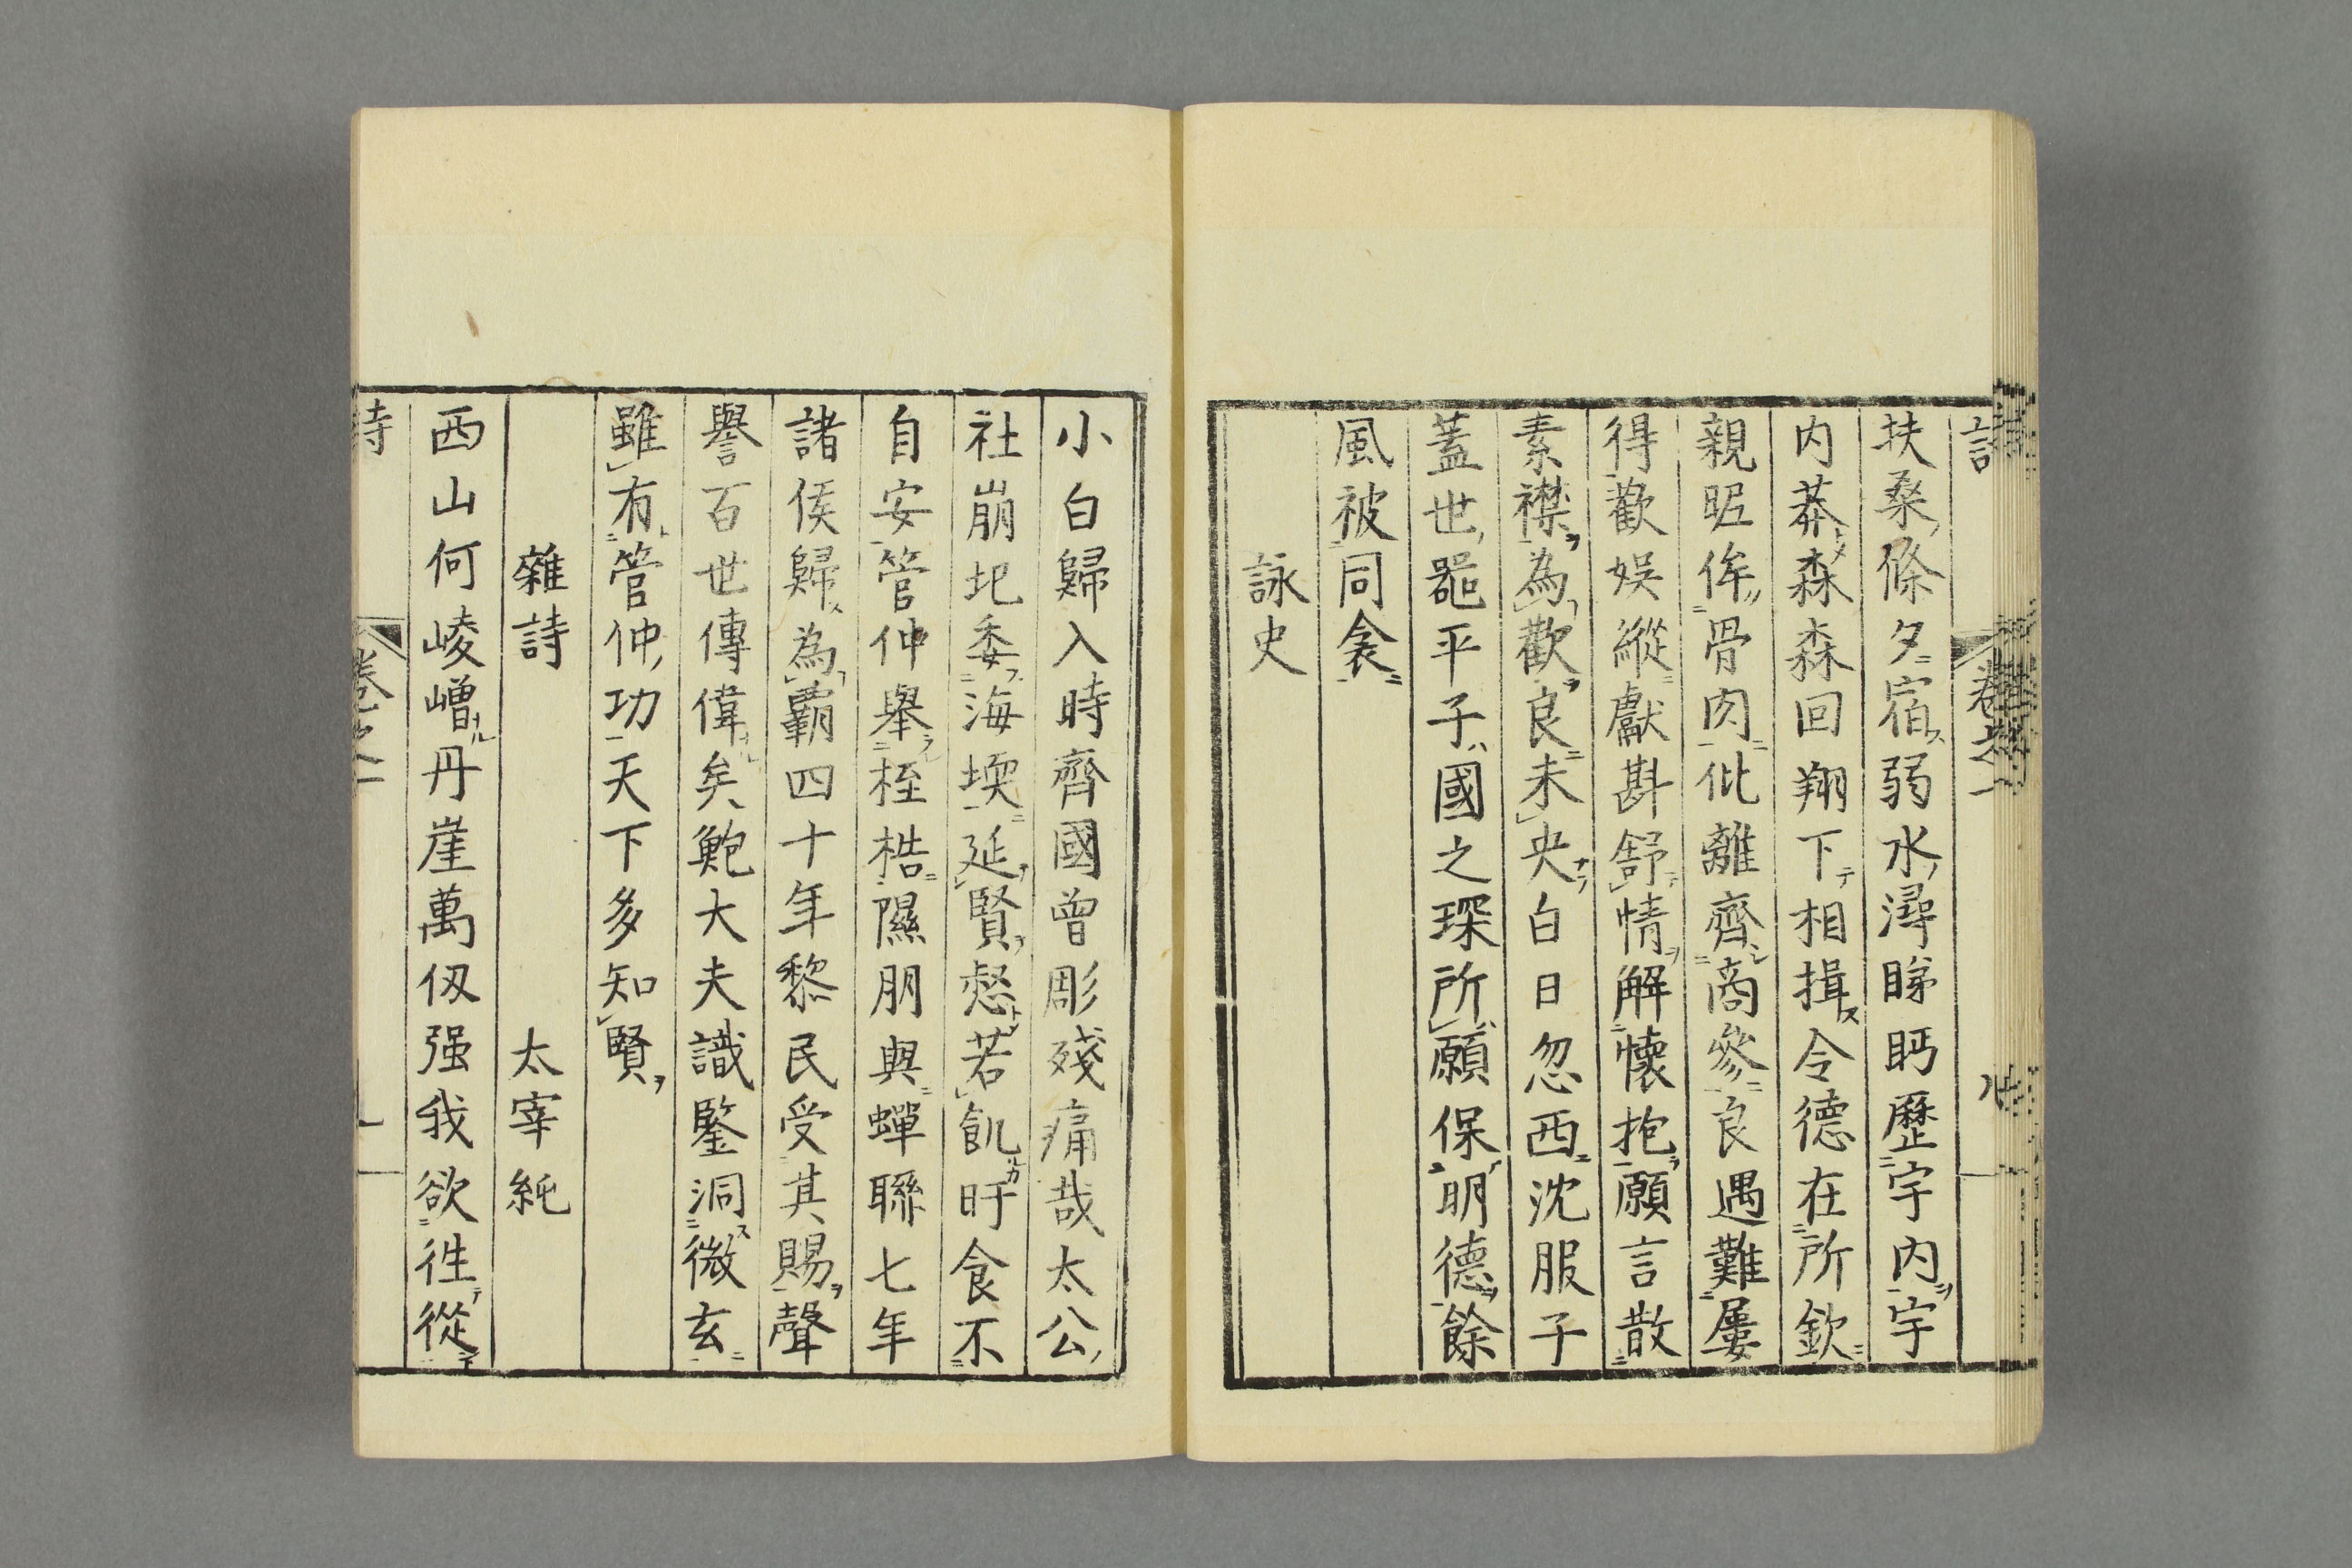 扶桑條夕宿弱水潯睇眄歷宇内宇
内莽森森回翔下相揖令德在所欽
親昵侔骨肉仳離齊商參良遇難屢
得歡娯縱獻斟舒情解懷抱願言散
素襟為歡良未央白日忽西沈服子
蓋世噐平子國之琛所願保明德餘
風被同衾
詠史
小白歸入時齊國曾彫殘痛哉太公
社崩圮委海堧延賢愁若飢旰食不
自安管仲舉桎梏隰朋與蟬聯七年
諸侯歸為霸四十年黎民受其賜聲
譽百世傳偉矣鮑大夫識鑒洞微玄
雖有管仲功天下多知賢
雜詩 太宰純
西山何崚嶒丹崖萬仞强我欲往從
詩 卷之一